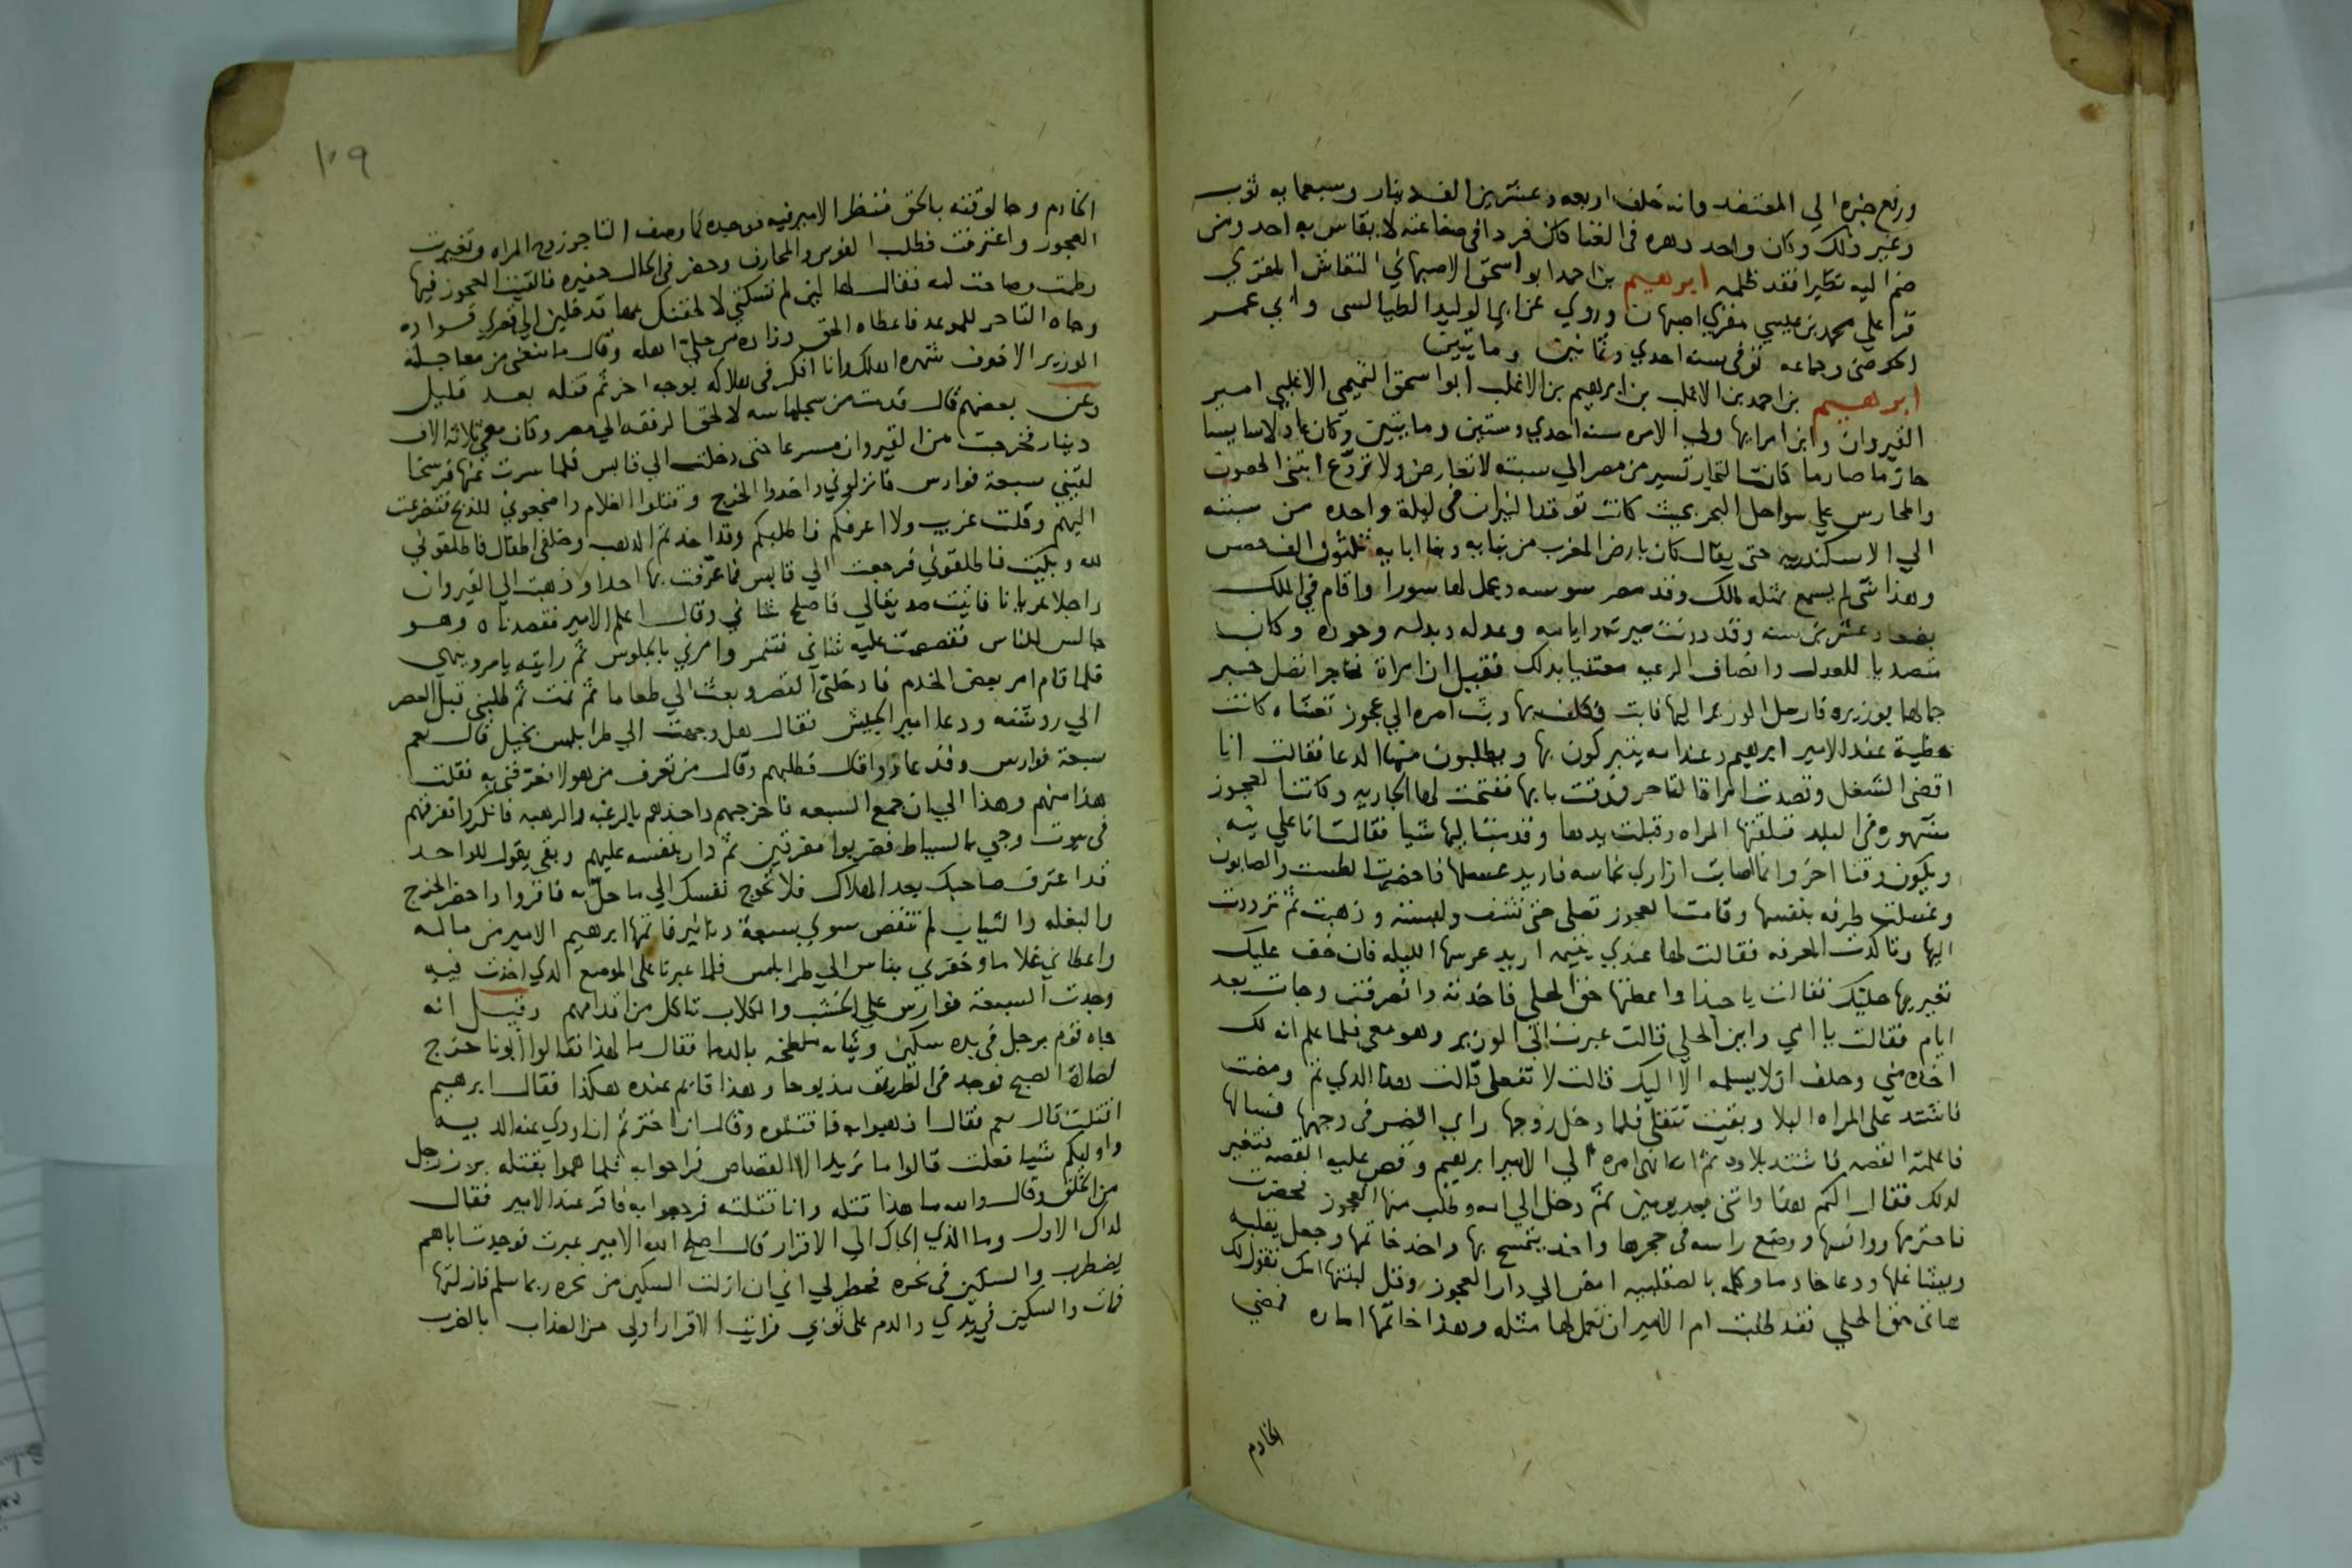 ورفع خبره الي المعتضد وانه خلف اربعه وعشرين الف دينار وسبعمايه ثوب
وغير ذلك وكان واحد دهره في الغنا كان فردا في صناعته لا يقاس به احد ومن
ضم اليه نظيرا فقد ظلمه ابرهيم بن احمد ابو اسحق الاصبهاني النقاش المقري
قرا علي محمد بن عيسي مقري اصبهان وروي عن ابي الوليد الطيالسي وابي عمر
الحوضي وجماعه توفي سنه احدي وثمانين ومايتين
ابرهيم بن احمد بن الاغلب بن ابرهيم بن الاغلب ابو اسحق التميمي الاغلبي امير
القيروان وابن امرايها ولي الامره سنه احدي وستين ومايتين وكان عادلا سايسا
حازما صارما كانت التجار تسير من مصر الي سبته لا تعارض ولا تروع ابتني الحصون
والمحارس علي سواحل البحر بحيث كانت توقد النيران في ليلة واحده من سبته
الي الاسكندريه حتي يقال كان بارض المغرب من بنايه وبنا ابايه ثلثون الف حصن
وهذا شي لم يسمع بمثله لملك وقد مصر سوسه وعمل لها سورا واقام في الملك
بضعا وعشرين سنه وقد دونت سيرته وايامه وعدله وبذله وجوده وكان
متصديا للعدل وانصاف الرعيه معتنيا بذلك فقيل ان امراة تاجر اتصل خبر
جمالها بوزيره فارسل الوزير اليها فابت فكلف بها وبث امره الي عجوز تغشاه كانت
حظية عند الامير ابرهيم وعند امه يتبركون بها ويطلبون منها الدعا فقالت انا
اقضي الشغل وقصدت امراة التاجر فدقت بابها ففتحت لها الجاريه وكانت العجوز
مشهوره في البلد فتلقتها المراه وقبلت يدها وقدمت اليها شيا فقالت انا علي نيه
ويكون وقتا اخر وانما اصابت ازاري نجاسه فاريد غسلها فاحضرت الطست والصابون
وغسلت طرفه بنفسها وقامت العجوز تصلي حتي نشف ولبسته وذهبت ثم ترددت
اليها وتاكدت المعرفه فقالت لها عندي يتيمه اريد عرسها الليله فان خف عليك
تعيريها حليتك فقالت يا حبذا واعطتها حق الحلي فاخذته وانصرفت وجات بعد
ايام فقالت يا امي واين الحلي قالت عبرت الي الوزير وهو معي فلما علم انه لك
اخذه مني وحلف ان لا يسلمه الا اليك قالت لا تفعلي قالت هذا الذي تم ومضت
فاشتد علي المراه البلا وبقيت تتقلي فلما دخل زوجها راي الضر في وجهها فسالها
فاعلمته القصه فاشتد بلاوه ثم انه انهي امره الي الامير ابرهيم وقص عليه القصه فتغير
لذلك فقال اكتم هذا واتني بعد يومين ثم دخل الي امه وطلب منها العجوز فحضرت
فاحترمها وانسها ووضع راسه في حجرها واخذ يتمسح بها واخذ خاتمها وجعل يقلبه
ويشاغلها ودعا خادما وكلمه بالصقلبيه امض الي دار العجوز وقل لبنتها امك تقول لك
هاتي حق الحلي فقد طلبت ام الامير ان تعمل لها مثله وهذا خاتمها اماره فمضي
الخادم
١٠٩
الخادم وجا لوقته بالحق فنظر الامير فيه فوجده كما وصف التاجر زوج المراه وتغيرت
العجوز واعترفت فطلب الفوس والمجارف وحفر في الحال حفيره فالقيت العجوز فيها
وطمت وصاحت امه فقال لها لين لم تسكتي لالحقنك بها قد تدخلين الي قصري قواده
وجاه التاجر للموعد فاعطاه الحق وزاده من حلي اهله وقال ما منعني من معاجلة
الوزير الا خوف شهره اهلك وانا افكر في هلاكه بوجه اخر ثم قتله بعد قليل
وعن بعضهم قال قدمت من سجلماسه لالحق الرفقه الي مصر وكان معي ثلاثه الاف
دينار فخرجت من القيروان مسرعا حتي دخلت الي قابس فلما سرت عنها فرسخا
لقيني سبعة فوارس فانزلوني واخذوا الخرج وقتلوا الغلام واضجعوني للذبح فتضرعت
اليهم وقلت غريب ولا اعرفكم فاطلبكم وقد اخذتم الذهب وخلفي اطفال فاطلقوني
لله وبكيت فاطلقوني فرجعت الي قابس فما عرفت بها احدا وذهبت الي القيروان
راجلا عريانا فاتيت صديقا لي فاصلح شاني وقال اعلم الامير فقصدناه وهو
جالس للناس فقصصت عليه شاني فتنمر وامرني بالجلوس ثم رايته يامر وينهي
فلما قام امر بعض الخدم فادخلني القصر وبعث الي طعاما ثم نمت ثم طلبني قبل العصر
الي روشنه ودعا امير الجيش فقال هل وجهت الي طرابلس بخيل قال نعم
سبعة فوارس وقد عادوا قال فطلبهم وقال من تعرف من هولا فعرفني به فقلت
هذا منهم وهذا الي ان جمع السبعه فاخرجهم واخذهم بالرغبه والرهبه فانكروا ففرقهم
في بيوت وجي بالسياط فضربوا مفرقين ثم دار بنفسه عليهم وبقي يقول للواحد
قد اعترف صاحبك بعد الهلاك فلا تحوج نفسك الي ما حل به فاقروا واحضر الخرج
والبغله والثياب لم تنقص سوي سبعة دنانير فاتمها ابرهيم الامير من ماله
واعطاني غلاما وخفرني بناس الي طرابلس فلما عبرنا علي الموضع الذي اخذت فيه
وجدت السبعة فوارس علي الخشب والكلاب تاكل من اقدامهم وقيل انه
جاه قوم برجل في يده سكين وثيابه ملطخه بالدما فقال ما لهذا فقالوا ابونا خرج
لصلاة الصبح فوجد في الطريق مذبوحا وهذا قايم عنده هكذا فقال ابرهيم
اقتلت قال نعم فقال اذهبوا به فاقتلوه وقال ان اخترتم ان اودي عنه الديه
واوليكم شيا فعلت قالوا ما نريد الا القصاص فراحوا به فلما هموا بقتله برز رجل
من الخلق وقال والله ما هذا قتله وانا قتلته فرجعوا به فاقر عند الامير فقال
لذاك الاول وما الذي الجاك الي الاقرار قال اصلح الله الامير عبرت فوجدت اباهم
يضطرب والسكين في نحره فخطر لي اني ان ازلت السكين من نحره ربما سلم فازلتها
فمات والسكين في يدي والدم علي ثوبي فرايت الاقرار اولي من العذاب بالضرب